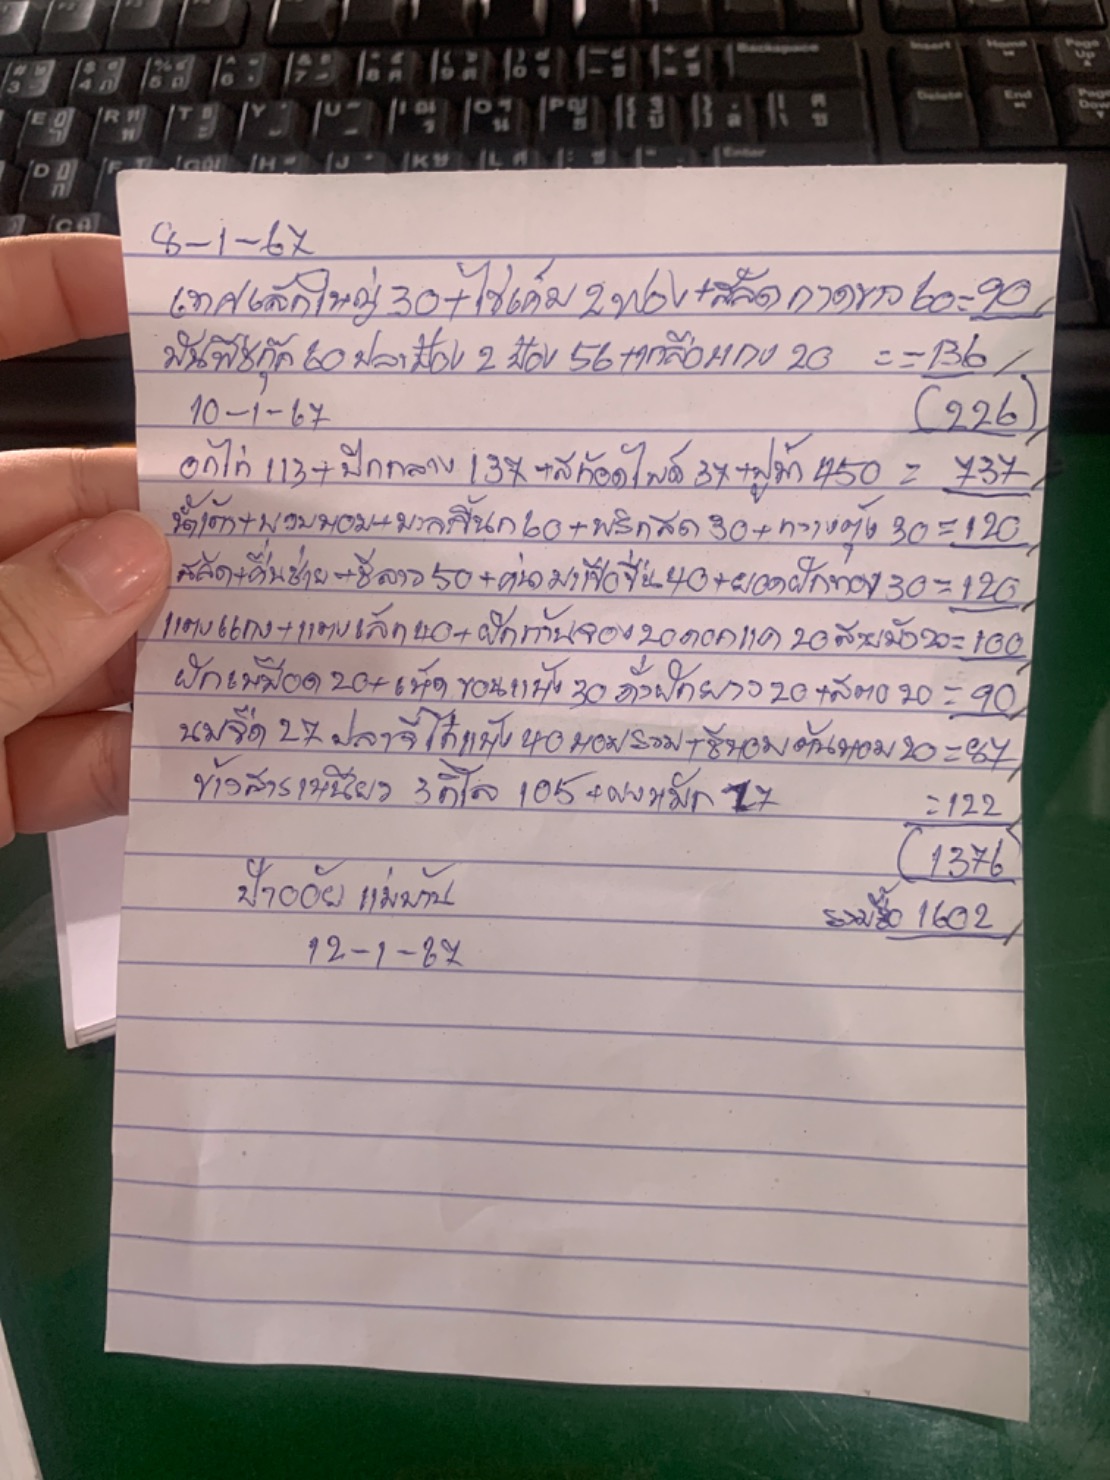 8-1-67
เทศเล็กใหญ่ 30+ไข่เค็ม 2 ฟอง+สลัด กาดขาว 60=90
60 ปลาป๋อง 2 ป๋อง 56+เกลือแกง 20 = =136
10-1-67 (226)
อกไก่ 113+ปีกกลาง 137+สก๊อตไบต์ 37+ 450 = 737
+ 60+พริกสด 30+กวางตุ้ง 30=120
สลัด+คื่นช่าย+ชีลาว 50+ มาเขือ 40+ยอดฝักทอง 30=120
แตงแกง+แตงเล็ก 40+ฝักก้านจอง 20 ดอกแค 20 สายบัว 20=100
ฝักเหมือด 20+เห็ดขอนแห้ง 30 ถั่วฝักยาว 20+สตอ 20 =90
นมจืด 27 ปลาจีโก๋แห้ง 40 หอมรวม+ชีหอม ต้นหอม 20=87
ข้าวสารเหนียว 3 กิโล 105+ผงหมัก 17 =122
(1376)
ป้าอ้อย แม่บ้าน รวมซื้อ 1602
12-1-67